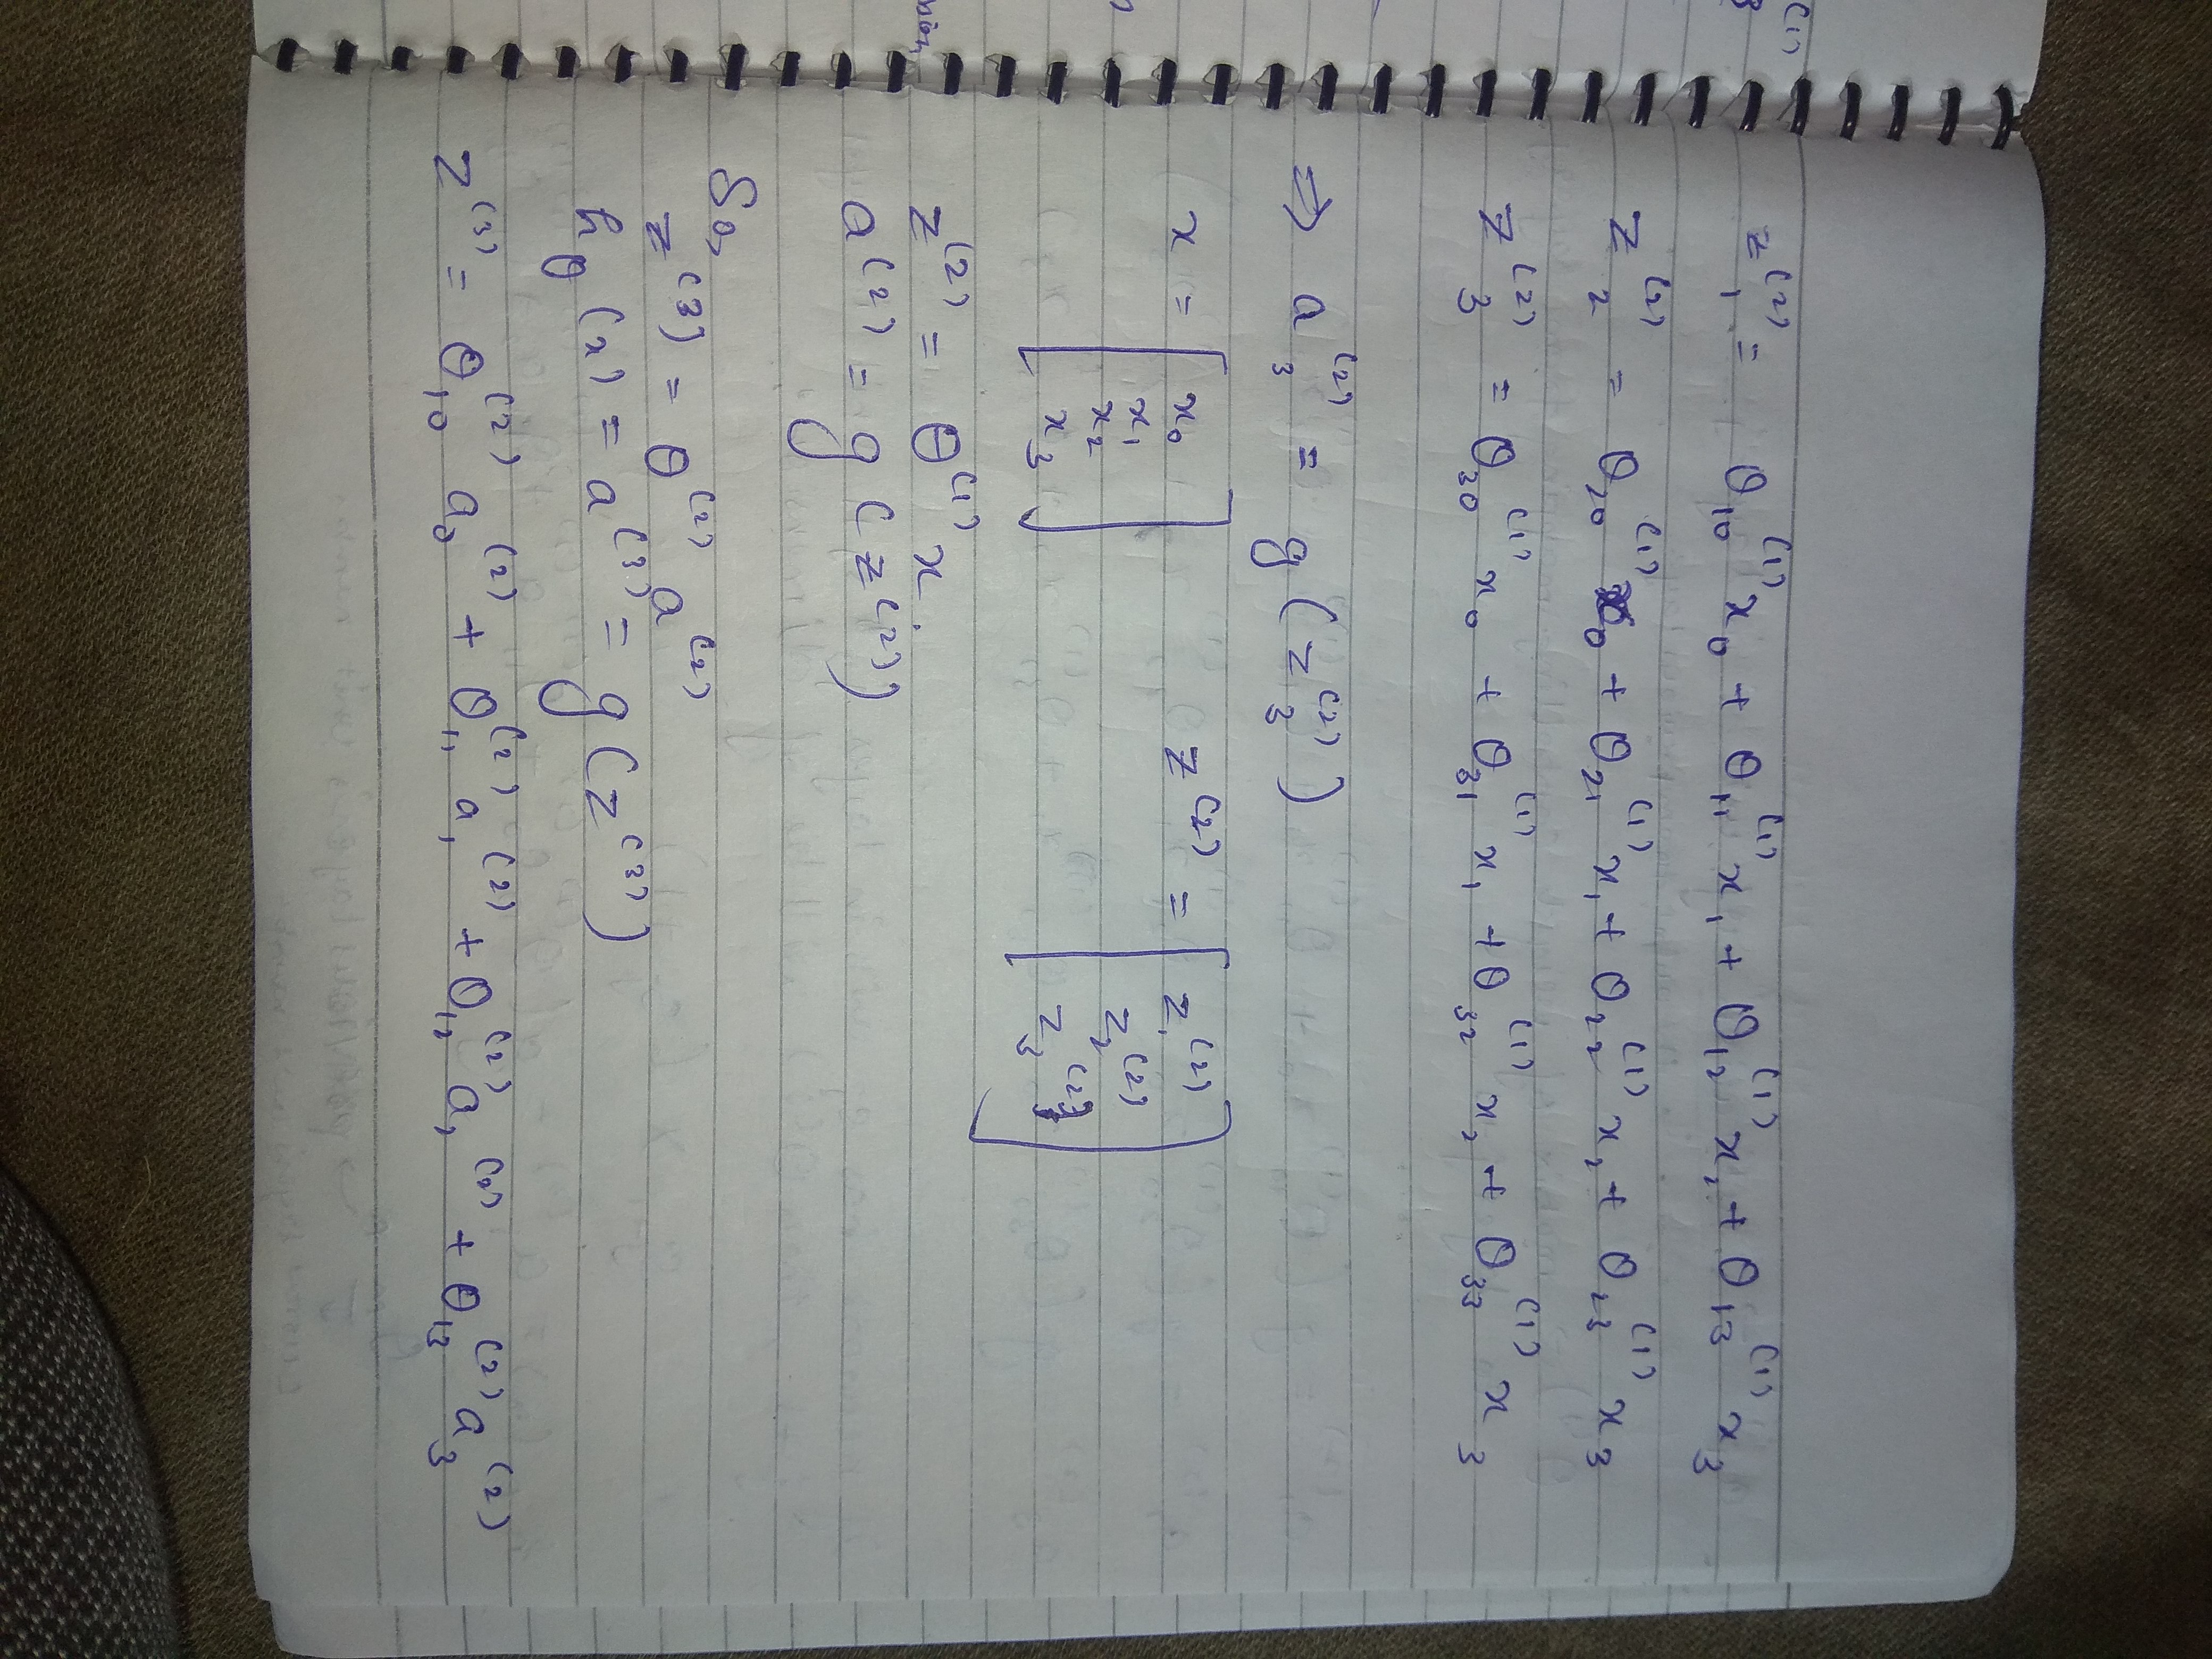 z₁⁽²⁾ = θ₁₀⁽¹⁾ x₀ + θ₁₁⁽¹⁾ x₁ + θ₁₂⁽¹⁾ x₂ + θ₁₃⁽¹⁾ x₃
z₂⁽²⁾ = θ₂₀⁽¹⁾ x₀ + θ₂₁⁽¹⁾ x₁ + θ₂₂⁽¹⁾ x₂ + θ₂₃⁽¹⁾ x₃
z₃⁽²⁾ = θ₃₀⁽¹⁾ x₀ + θ₃₁⁽¹⁾ x₁ + θ₃₂⁽¹⁾ x₂ + θ₃₃⁽¹⁾ x₃
⇒ a₃⁽²⁾ = g(z₃⁽²⁾)
x = [x₀ x₁ x₂ x₃] z⁽²⁾ = [z₁⁽²⁾ z₂⁽²⁾ z₃⁽²⁾]
z⁽²⁾ = θ⁽¹⁾ x.
a⁽²⁾ = g(z⁽²⁾)
So,
z⁽³⁾ = θ⁽²⁾ a⁽²⁾
h_θ(x) = a⁽³⁾ = g(z⁽³⁾)
z⁽³⁾ = θ₁₀⁽²⁾ a₀⁽²⁾ + θ₁₁⁽²⁾ a₁⁽²⁾ + θ₁₂⁽²⁾ a₂⁽²⁾ + θ₁₃⁽²⁾ a₃⁽²⁾